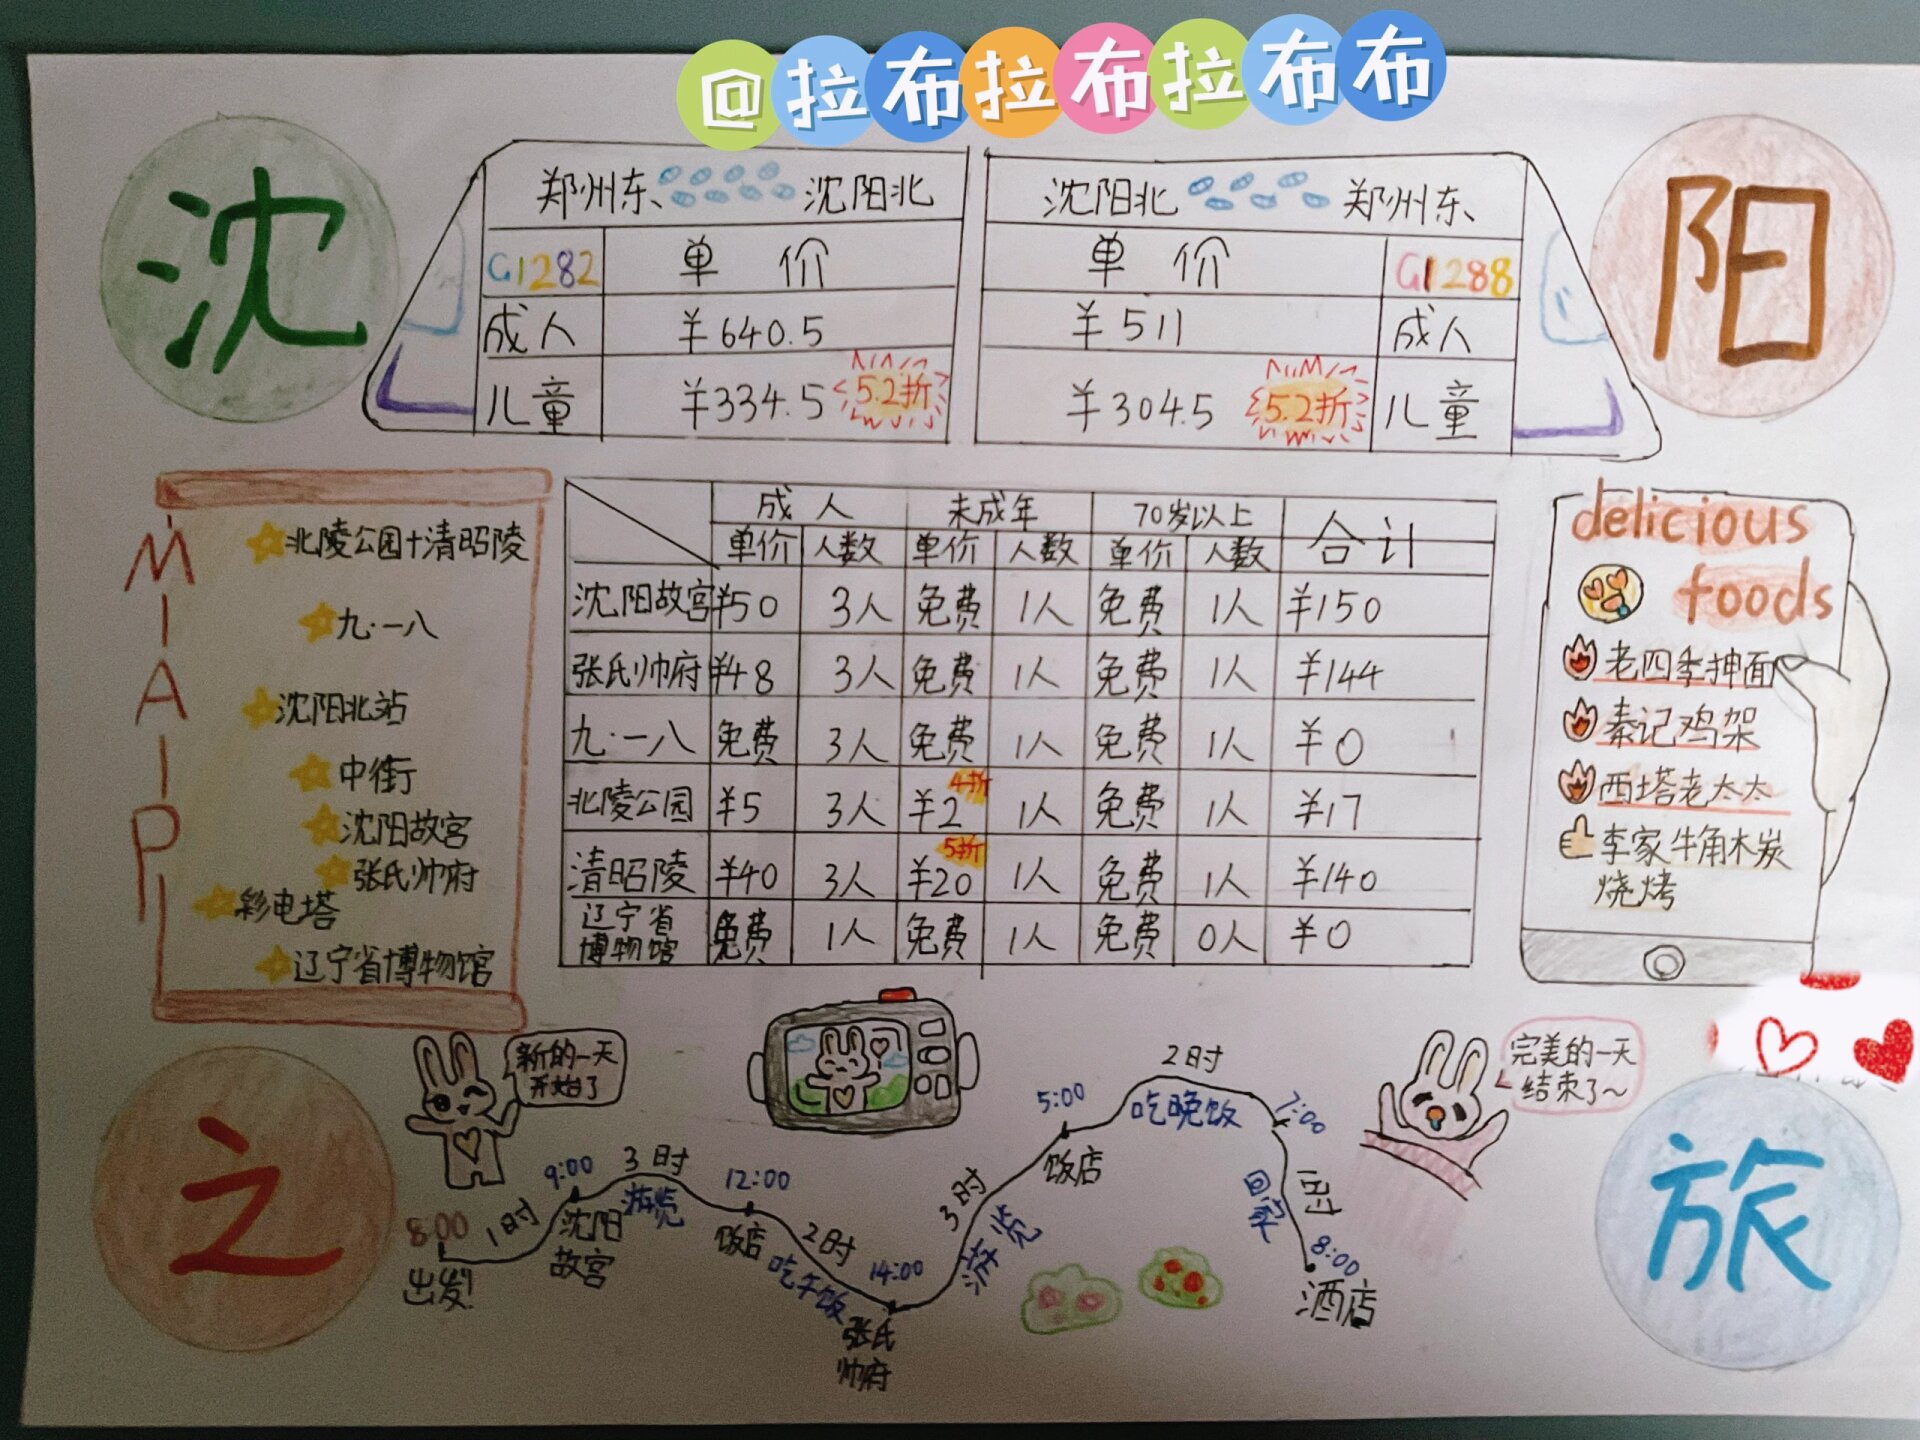 @拉布拉布拉布布
沈
阳
郑州东 沈阳北
G1282 单价
成人 ¥640.5
儿童 ¥334.5 5.2折
沈阳北 郑州东
单价 G1288
¥511 成人
¥304.5 5.2折 儿童
MAP
北陵公园+清昭陵
九·一八
沈阳北站
中街
沈阳故宫
张氏帅府
彩电塔
辽宁省博物馆
成人 未成年 70岁以上 合计
单价 人数 单价 人数 单价 人数
沈阳故宫 ¥50 3人 免费 1人 免费 1人 ¥150
张氏帅府 ¥48 3人 免费 1人 免费 1人 ¥144
九·一八 免费 3人 免费 1人 免费 1人 ¥0
北陵公园 ¥5 3人 ¥2 4折 1人 免费 1人 ¥17
清昭陵 ¥40 3人 ¥20 5折 1人 免费 1人 ¥140
辽宁省博物馆 免费 1人 免费 1人 免费 0人 ¥0
delicious
foods
老四季抻面
秦记鸡架
西塔老太太
李家牛角木炭
烧烤
之
旅
新的一天
开始了
8:00
出发!
1时
9:00
沈阳
故宫
3时
游览
12:00
饭店
2时
吃午饭
14:00
张氏
帅府
3时
游览
5:00
饭店
2时
吃晚饭
7:00
1时
回家
8:00
酒店
完美的一天
结束了~